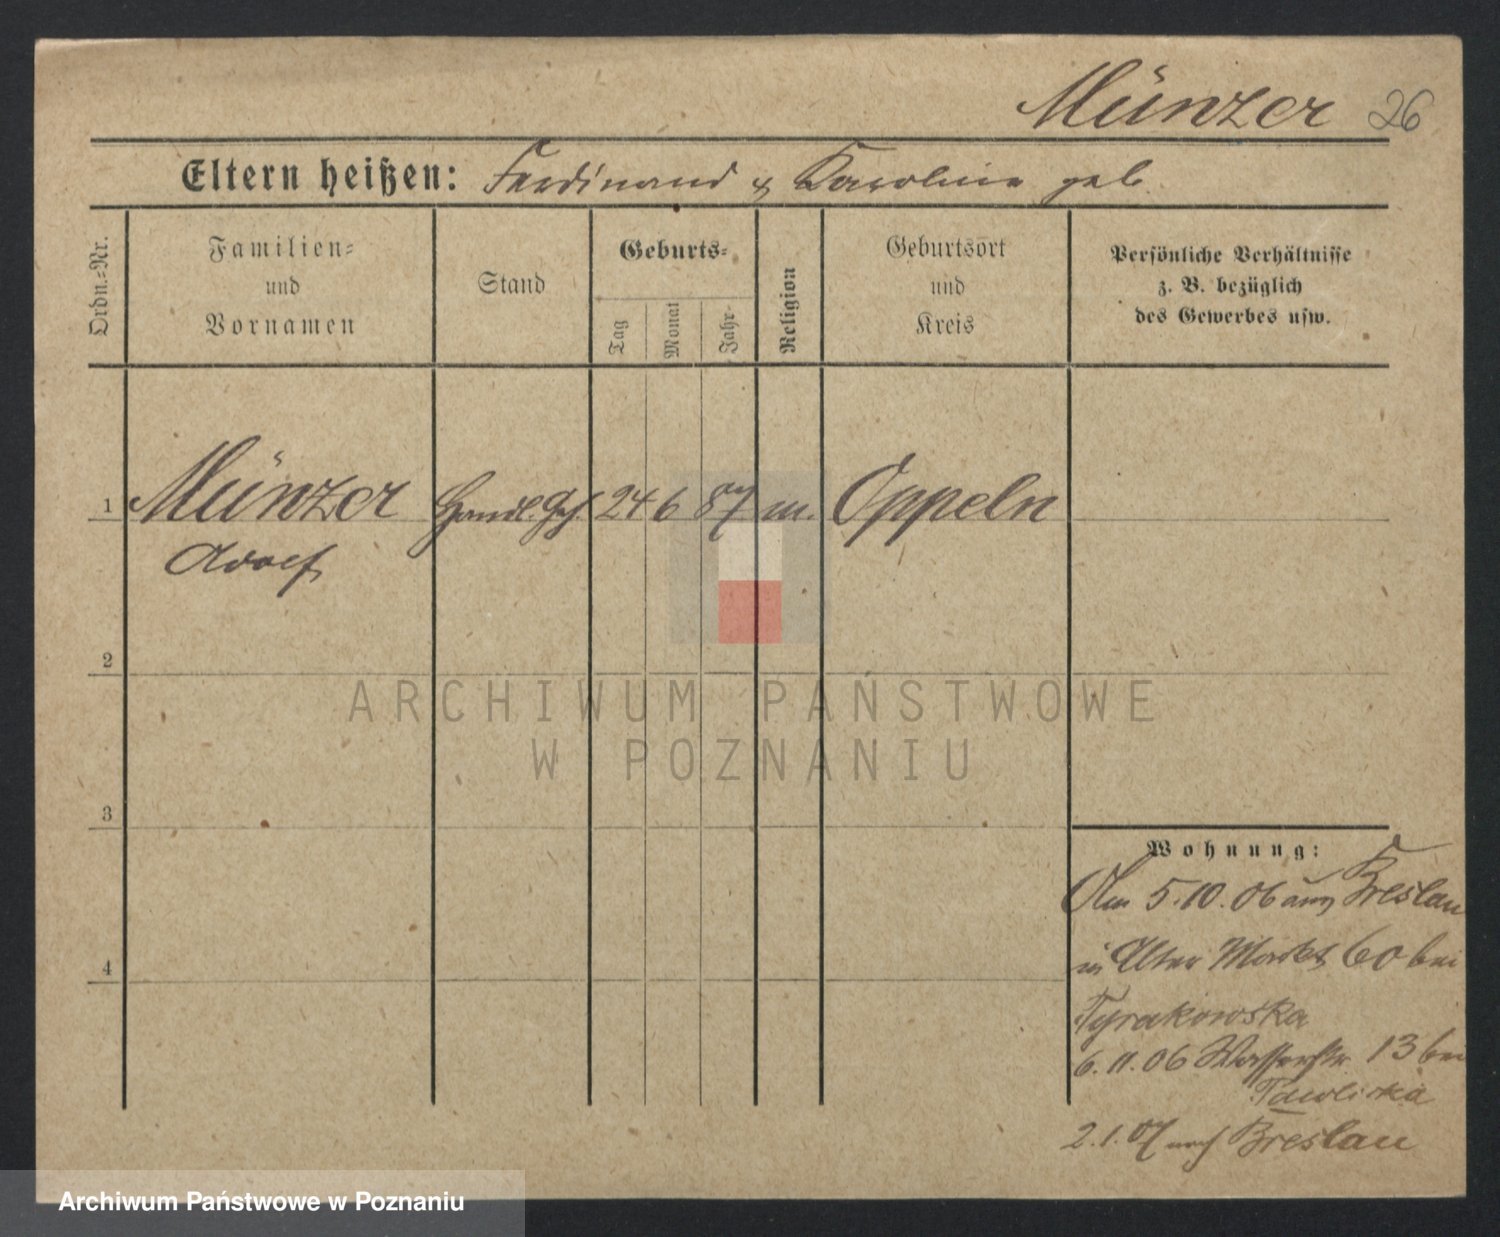 Münzer 26
Eltern heißen: Ferdinand & Karoline geb.
Ordn.=Nr.
Familien=
und
Vornamen
Stand
Geburts=
Tag
Monat
Jahr-
Religion
Geburtsort
und
Kreis
Persönliche Verhältnisse
z. B. bezüglich
des Gewerbes usw.
1 Münzer Handl. Geh. 24 6 87 m. Oppeln
Adolf
2
3
4
Wohnung:
Am 5.10.06 aus Breslau
in Alter Markt 60 bei
Tyrakowska
6.11.06 Wasserstr. 13 bei
Pawlicka
2.1.07 nach Breslau
ARCHIWUM PAŃSTWOWE
W POZNANIU
Archiwum Państwowe w Poznaniu